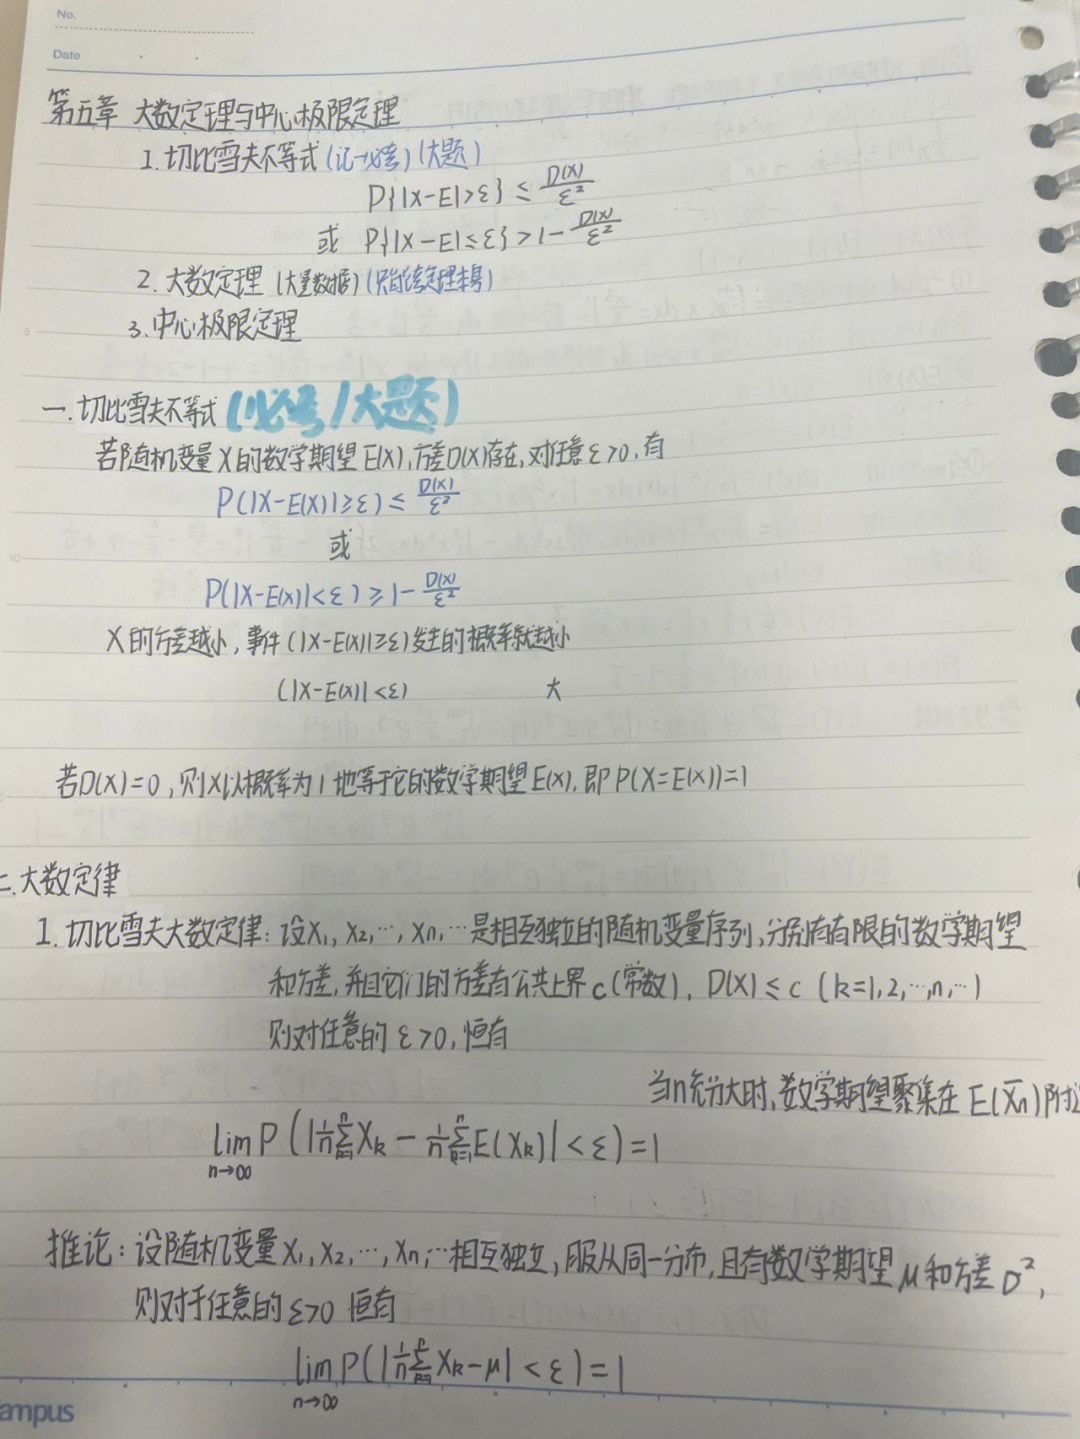 No.
Date
第五章 大数定理与中心极限定理
1. 切比雪夫不等式 (记一必考) (大题)
P{|X-E|>ε} ≤ D(X)/ε²
或 P{|X-E|≤ε} > 1- D(X)/ε²
2. 大数定理 (大量数据) (只能考定理本身)
3. 中心极限定理
一. 切比雪夫不等式 (必考/大题)
若随机变量X的数学期望E(X),方差D(X)存在,对任意ε>0,有
P(|X-E(X)|≥ε) ≤ D(X)/ε²
或
P(|X-E(X)|<ε) ≥ 1- D(X)/ε²
X的方差越小,事件(|X-E(X)|≥ε)发生的概率就越小
(|X-E(X)|<ε) 大
若D(X)=0,则X以概率为1地等于它的数学期望E(X),即P(X=E(X))=1
二.大数定律
1. 切比雪夫大数定律:设X₁, X₂,…, Xn,…是相互独立的随机变量序列,分别有有限的数学期望
和方差,并且它们的方差有公共上界c(常数), D(X)≤c (k=1,2,…,n,…)
则对任意的ε>0,恒有
当n充分大时,数学期望聚集在E(X̄n)附近
lim n→∞ P(|1/n Σ k=1 n Xk - 1/n Σ k=1 n E(Xk)| < ε)=1
推论:设随机变量X₁, X₂,…, Xn,…相互独立,服从同一分布,且有数学期望μ和方差σ²,
则对于任意的ε>0 恒有
lim n→∞ P(|1/n Σ k=1 n Xk-μ| < ε)=1
ampus